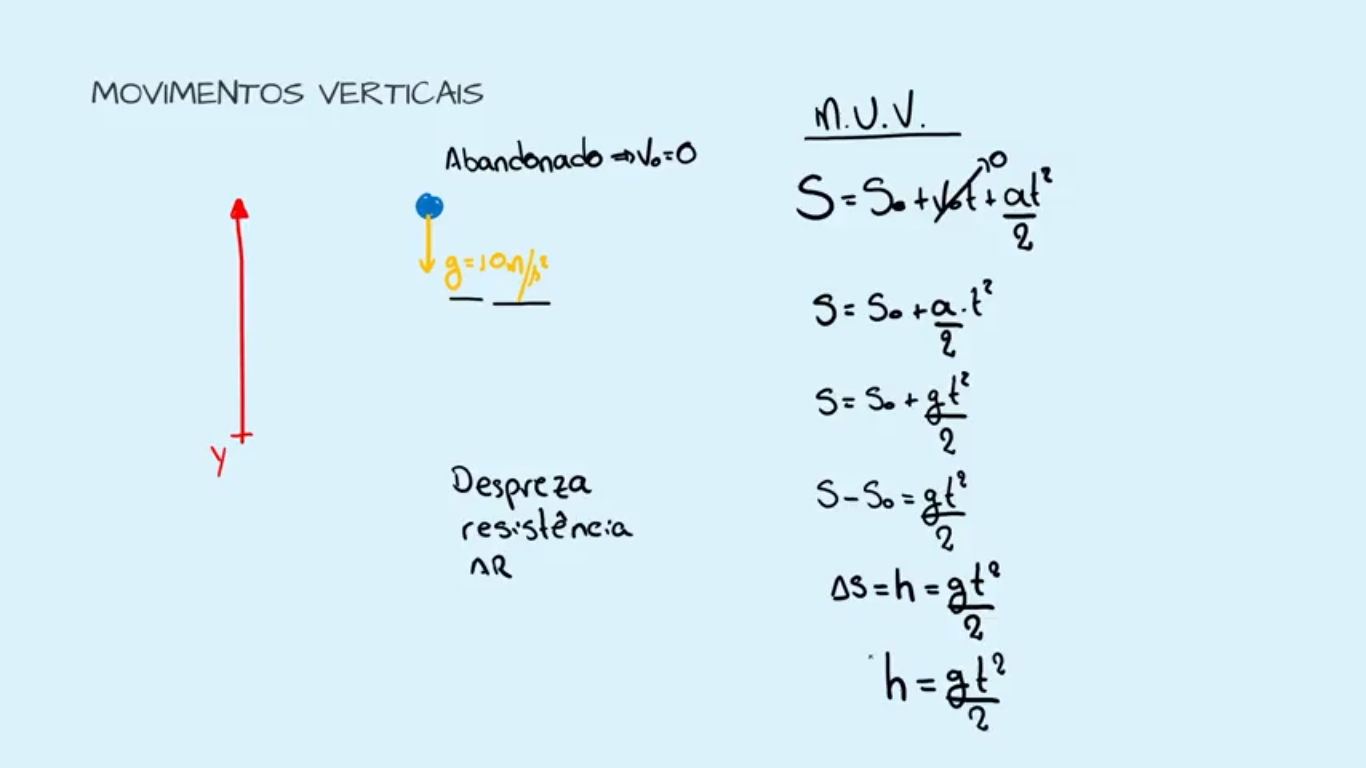 MOVIMENTOS VERTICAIS
Abandonado ⇒ V₀ = 0
g = 10 m/s²
Y
Despreza
resistência
AR
M.U.V.
S = S₀ + V₀t→0 + at²/2
S = S₀ + a/2 . t²
S = S₀ + gt²/2
S - S₀ = gt²/2
ΔS = h = gt²/2
h = gt²/2